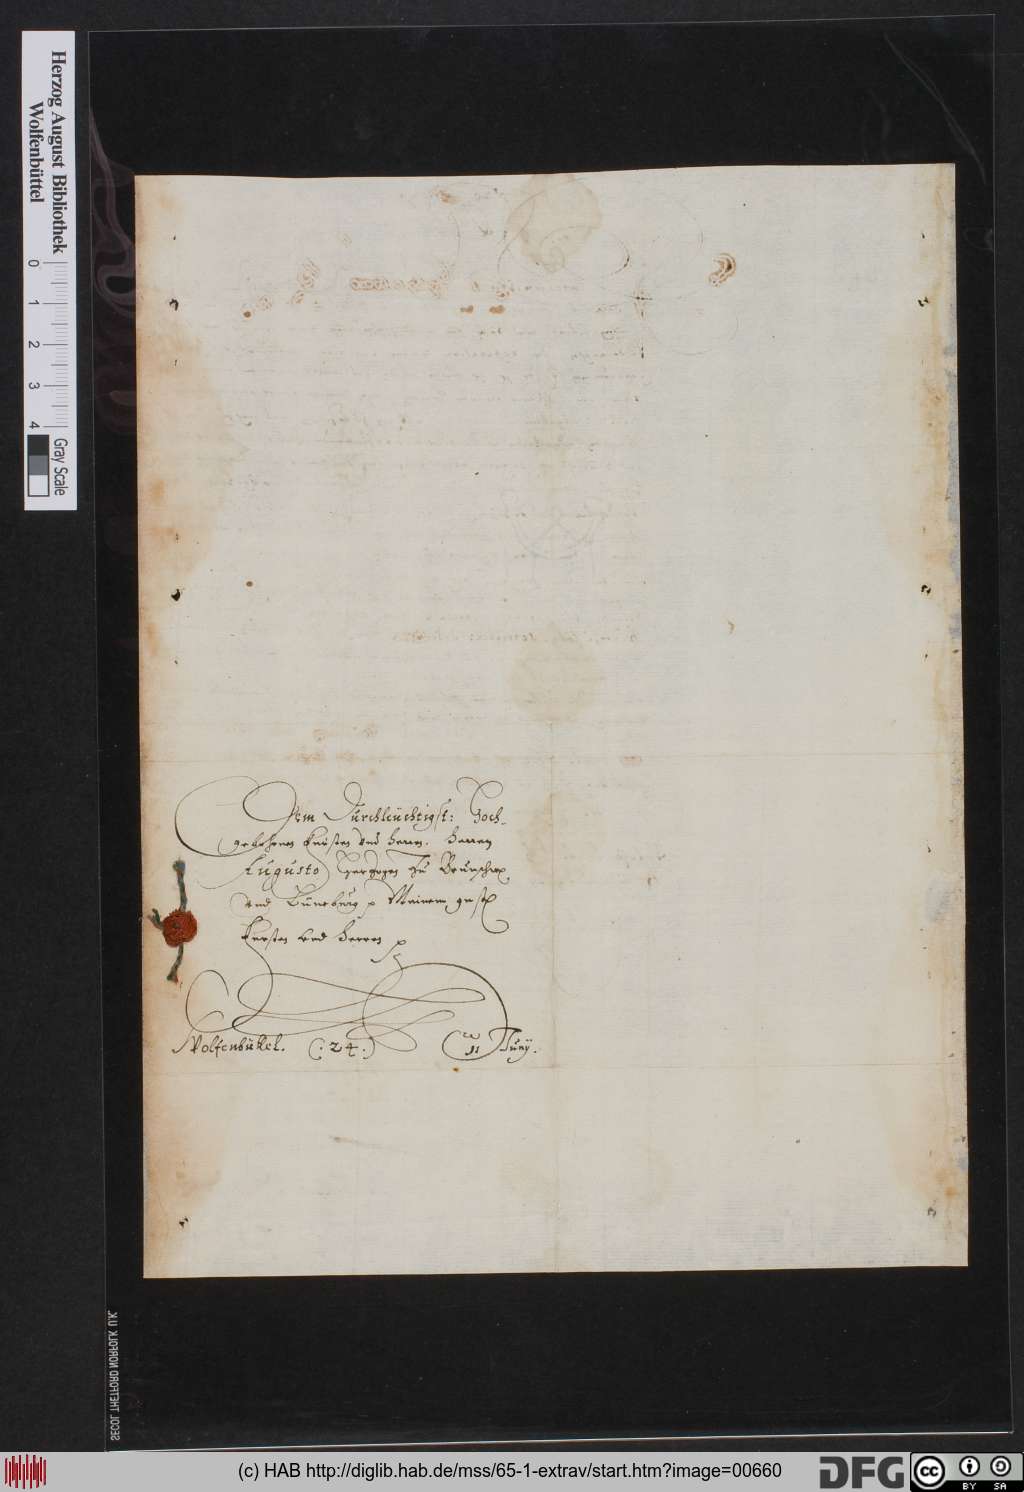 Herzog August Bibliothek
Wolfenbüttel
0 1 2 3 4
Gray Scale
Dem Durchleuchtigst: Hoch-
gebohrnen Fursten vnd Herrn. Herren
Augusto Hertzogen zu Braunschw.
vnd Luneburg p Meinem gnst
Fursten vnd Herren p
Wolfenbuttel. (: 24 :) 11 Juny.
SECOL THETFORD NORFOLK U.K.
(c) HAB http://diglib.hab.de/mss/65-1-extrav/start.htm?image=00660
DFG
cc BY SA